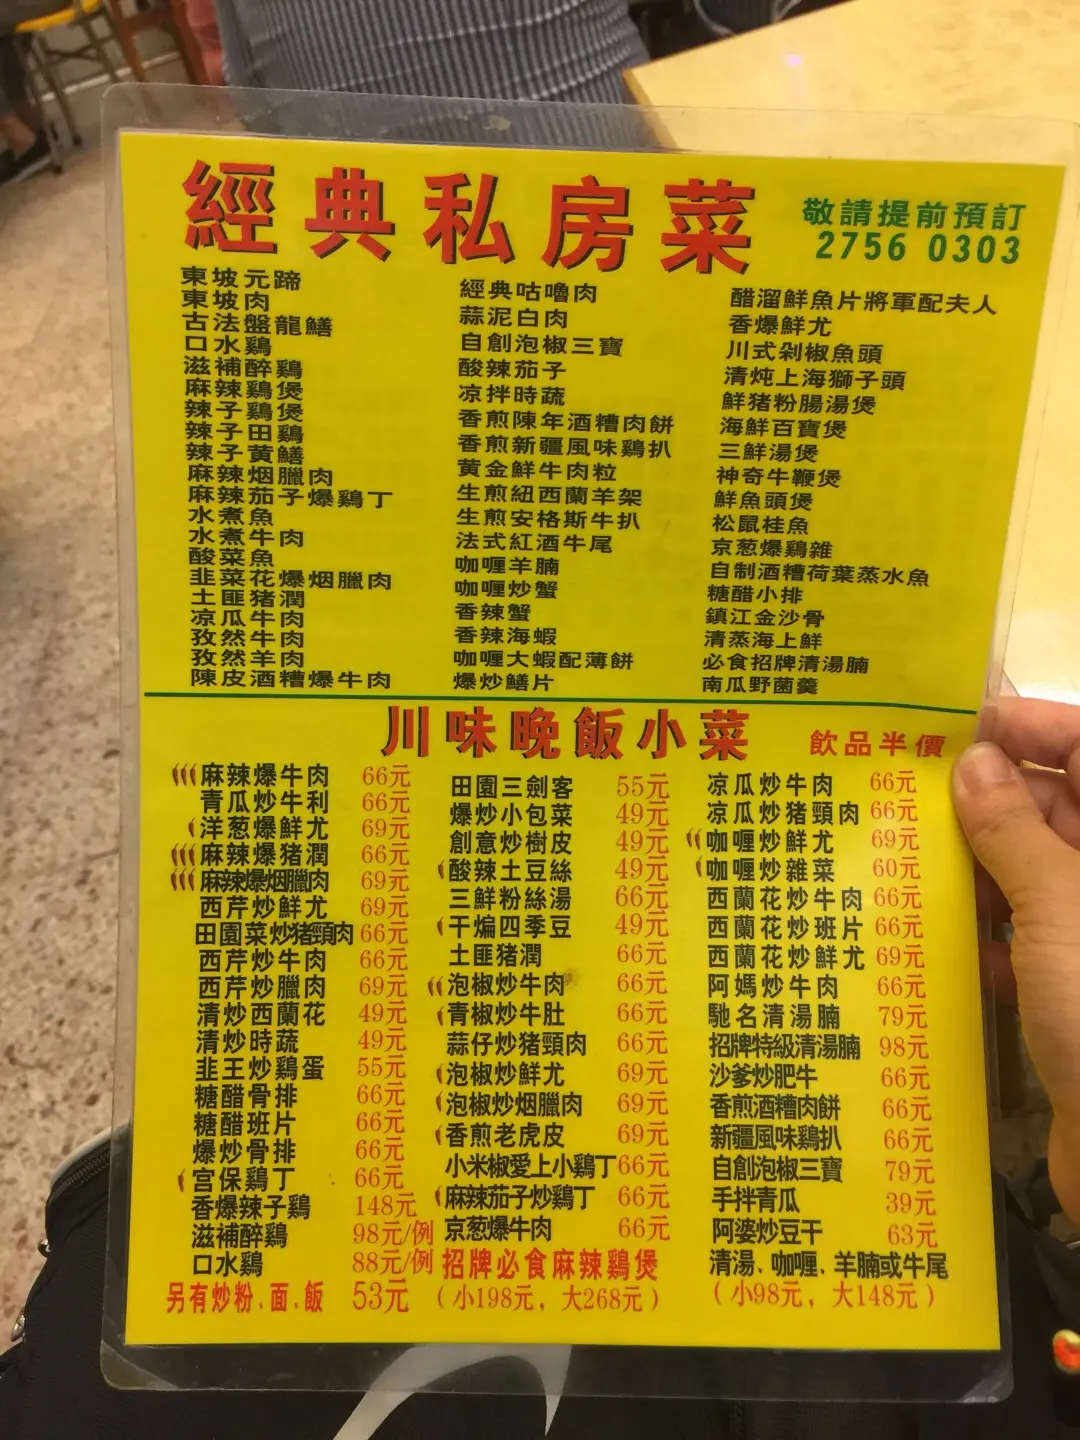 經典私房菜
敬請提前預訂
2756 0303
東坡元蹄
東坡肉
古法盤龍鱔
口水鷄
滋補醉鷄
麻辣鷄煲
辣子鷄煲
辣子田鷄
辣子黃鱔
麻辣烟臘肉
麻辣茄子爆鷄丁
水煮魚
水煮牛肉
酸菜魚
韭菜花爆烟臘肉
土匪猪潤
凉瓜牛肉
孜然牛肉
孜然羊肉
陳皮酒糟爆牛肉
經典咕嚕肉
蒜泥白肉
自創泡椒三寶
酸辣茄子
凉拌時蔬
香煎陳年酒糟肉餅
香煎新疆風味鷄扒
黃金鮮牛肉粒
生煎紐西蘭羊架
生煎安格斯牛扒
法式紅酒牛尾
咖喱羊腩
咖喱炒蟹
香辣蟹
香辣海蝦
咖喱大蝦配薄餅
爆炒鱔片
醋溜鮮魚片將軍配夫人
香爆鮮尤
川式剁椒魚頭
清炖上海獅子頭
鮮猪粉腸湯煲
海鮮百寶煲
三鮮湯煲
神奇牛鞭煲
鮮魚頭煲
松鼠桂魚
京葱爆鷄雜
自制酒糟荷葉蒸水魚
糖醋小排
鎮江金沙骨
清蒸海上鮮
必食招牌清湯腩
南瓜野菌羹
川味晚飯小菜
飲品半價
麻辣爆牛肉 66元
青瓜炒牛利 66元
洋葱爆鮮尤 69元
麻辣爆猪潤 66元
麻辣爆烟臘肉 69元
西芹炒鮮尤 69元
田園菜炒猪頸肉 66元
西芹炒牛肉 66元
西芹炒臘肉 69元
清炒西蘭花 49元
清炒時蔬 49元
韭王炒鷄蛋 55元
糖醋骨排 66元
糖醋班片 66元
爆炒骨排 66元
宫保鷄丁 66元
香爆辣子鷄 148元
滋補醉鷄 98元/例
口水鷄 88元/例
另有炒粉、面、飯 53元
田園三劍客 55元
爆炒小包菜 49元
創意炒樹皮 49元
酸辣土豆絲 49元
三鮮粉絲湯 66元
干煸四季豆 49元
土匪猪潤 66元
泡椒炒牛肉 66元
青椒炒牛肚 66元
蒜仔炒猪頸肉 66元
泡椒炒鮮尤 69元
泡椒炒烟臘肉 69元
香煎老虎皮 69元
小米椒愛上小鷄丁 66元
麻辣茄子炒鷄丁 66元
京葱爆牛肉 66元
招牌必食麻辣鷄煲
（小198元，大268元）
凉瓜炒牛肉 66元
凉瓜炒猪頸肉 66元
咖喱炒鮮尤 69元
咖喱炒雜菜 60元
西蘭花炒牛肉 66元
西蘭花炒班片 66元
西蘭花炒鮮尤 69元
阿媽炒牛肉 66元
馳名清湯腩 79元
招牌特級清湯腩 98元
沙爹炒肥牛 66元
香煎酒糟肉餅 66元
新疆風味鷄扒 66元
自創泡椒三寶 79元
手拌青瓜 39元
阿婆炒豆干 63元
清湯、咖喱、羊腩或牛尾
（小98元，大148元）